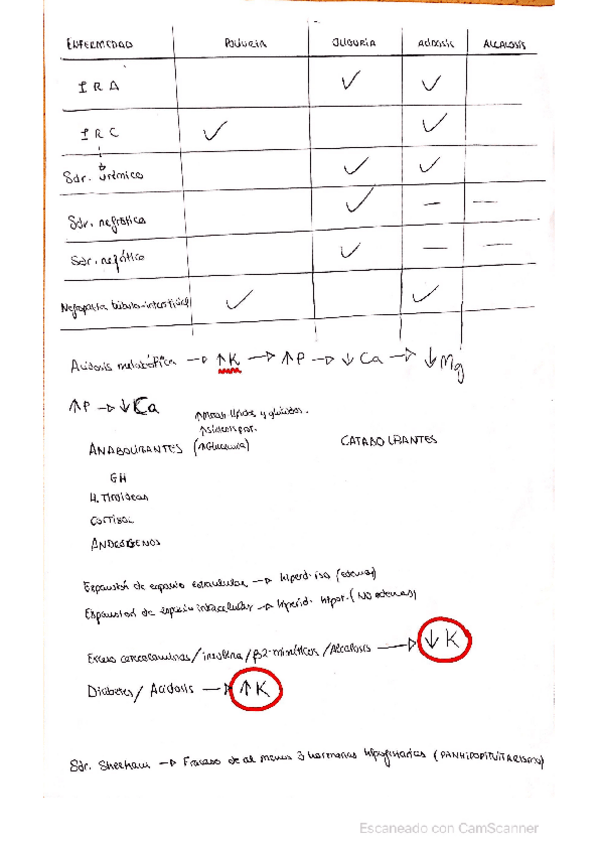 ENFERMEDAD POLIURIA OLIGURIA ACIDOSIS ALCALOSIS
IRA ✓ ✓
IRC ✓ ✓
Sdr. urémico ✓ ✓
Sdr. nefrótico ✓ — —
Sdr. nefrítico ✓ — —
Nefropatía túbulo-intersticial ✓ ✓
Acidosis metabólica → ↑K → ↑P → ↓Ca → ↓Mg
↑P → ↓Ca
lípidos y glúcidos.
ANABOLIZANTES (↑Glucemia) CATABOLIZANTES
GH
H. Tiroideas
CORTISOL
ANDRÓGENOS
Expansión de espacio extracelular → hiperhid. iso (edemas)
Expansión de espacio intracelular → hiperhid. hipot. (NO edemas)
Exceso catecolaminas / insulina / β2-miméticos / Alcalosis → ↓K
Diabetes / Acidosis → ↑K
Sdr. Sheehan → Fracaso de al menos 3 hormonas hipofisarias (PANHIPOPITUITARISMO)
Escaneado con CamScanner